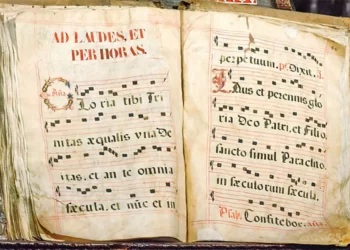 AD LAUDES, ET
PER HORAS.
Aña
Gloria tibi Tri
nitas æqualis vna De
itas, et an te omnia
sæcula, et nūc et in
perpetuum. ps. Dixit.
Laus et perennis glo
ria Deo Patri, et Filio,
sancto simul Paraclito,
in sæculorum sæcula.
Psal. Confitebor.